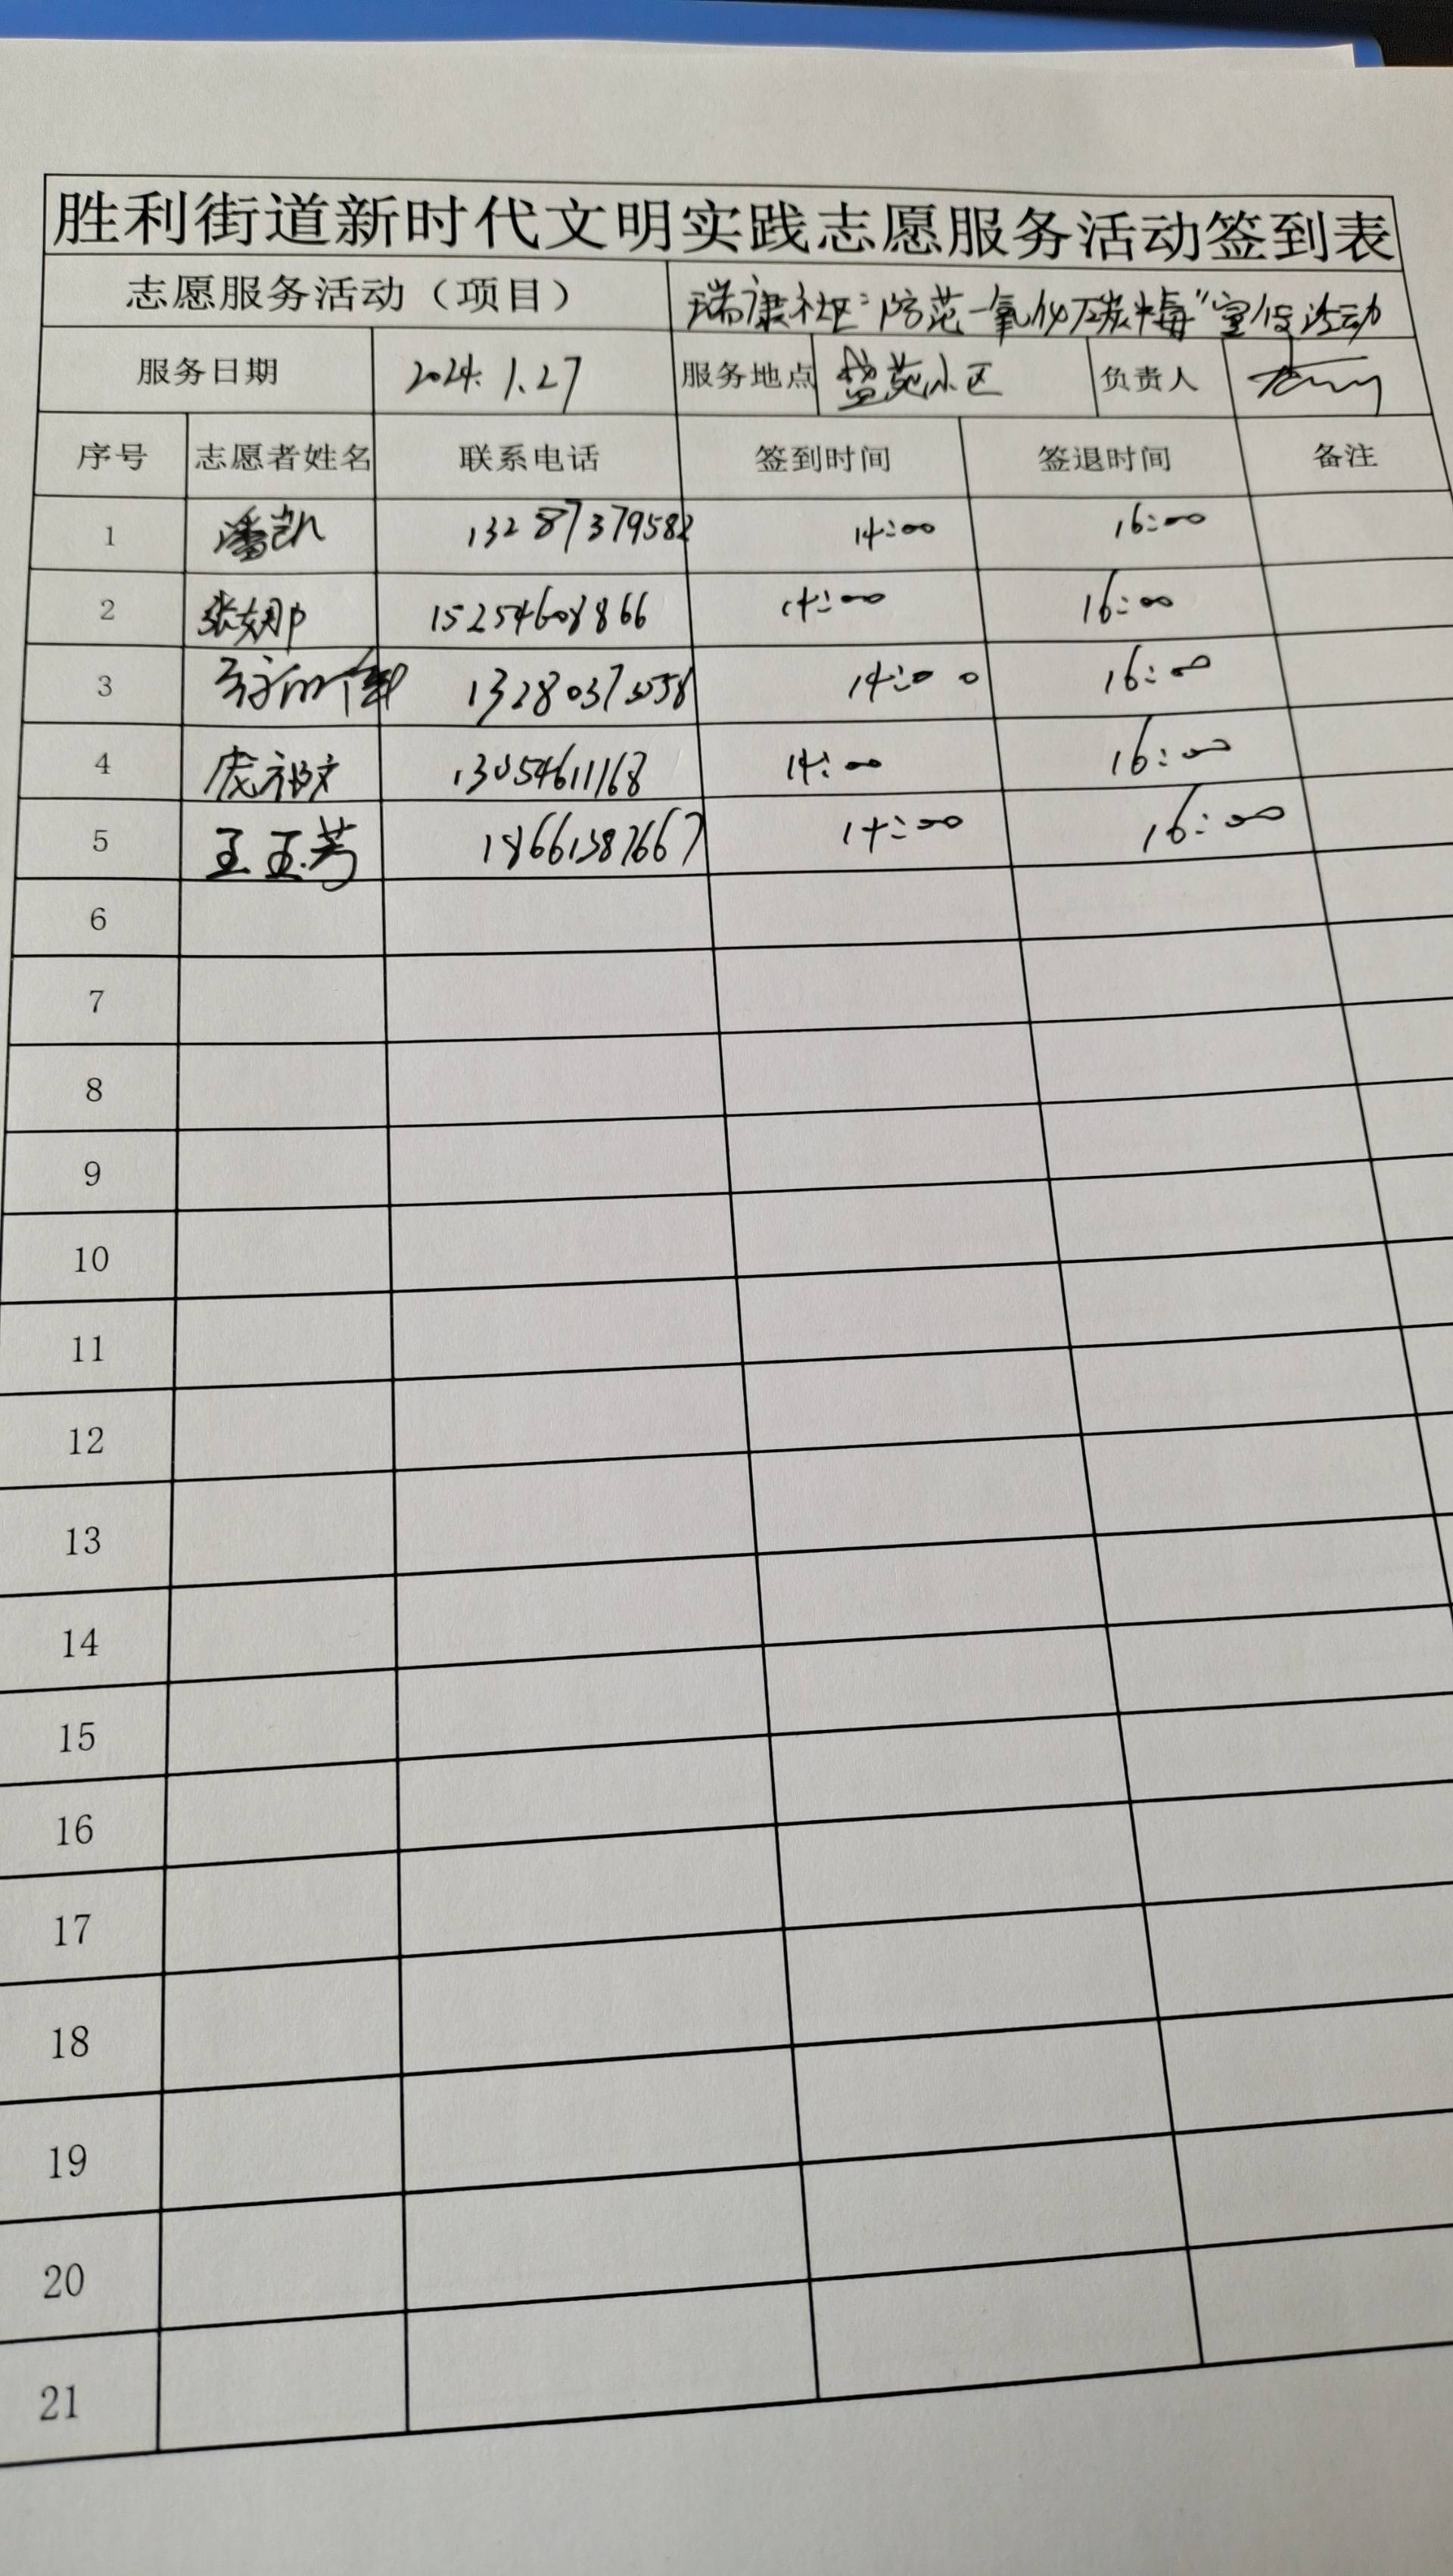 胜利街道新时代文明实践志愿服务活动签到表
志愿服务活动（项目） 瑞康社区"防范一氧化碳中毒"宣传活动
服务日期 2024.1.27 服务地点 盛苑小区 负责人
序号 志愿者姓名 联系电话 签到时间 签退时间 备注
1 潘凯 13287379582 14:00 16:00
2 张娜 15254608866 14:00 16:00
3 14:00 16:00
4 13054611168 14:00 16:00
5 王玉芳 18661387667 14:00 16:00
6
7
8
9
10
11
12
13
14
15
16
17
18
19
20
21